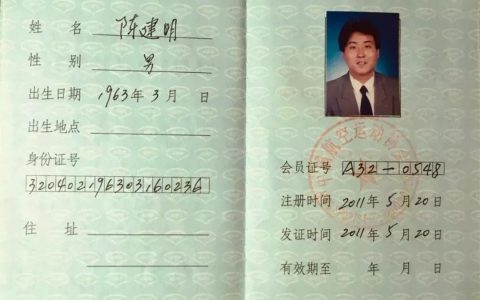 姓 名 陈建明
性 别 男
出生日期 1963年3月 日
出生地点
身份证号
32040219630316023G
住 址
会员证号 A32-0548
注册时间 2011年5月20日
发证时间 2011年5月20日
有效期至 年 月 日
航空运动协会